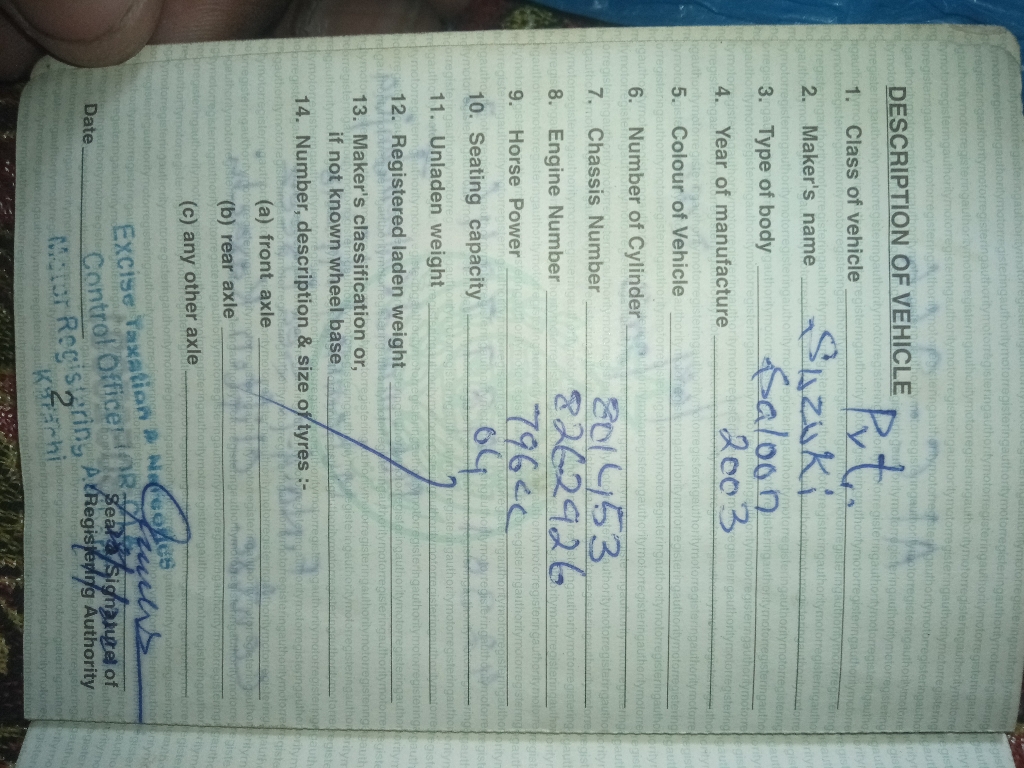 DESCRIPTION OF VEHICLE
1. Class of vehicle Pvt.
2. Maker's name Suzuki
3. Type of body Saloon
4. Year of manufacture 2003
5. Colour of Vehicle
6. Number of Cylinder
7. Chassis Number 8014453
8. Engine Number 8262926
9. Horse Power 796cc
10. Seating capacity 04
11. Unladen weight
12. Registered laden weight
13. Maker's classification or,
if not known wheel base
14. Number, description & size of tyres :-
(a) front axle
(b) rear axle
(c) any other axle
Excise Taxation & Narcotics
Control Officer
Motor Registering
Karachi
Seal & Signature of
Date Registering Authority